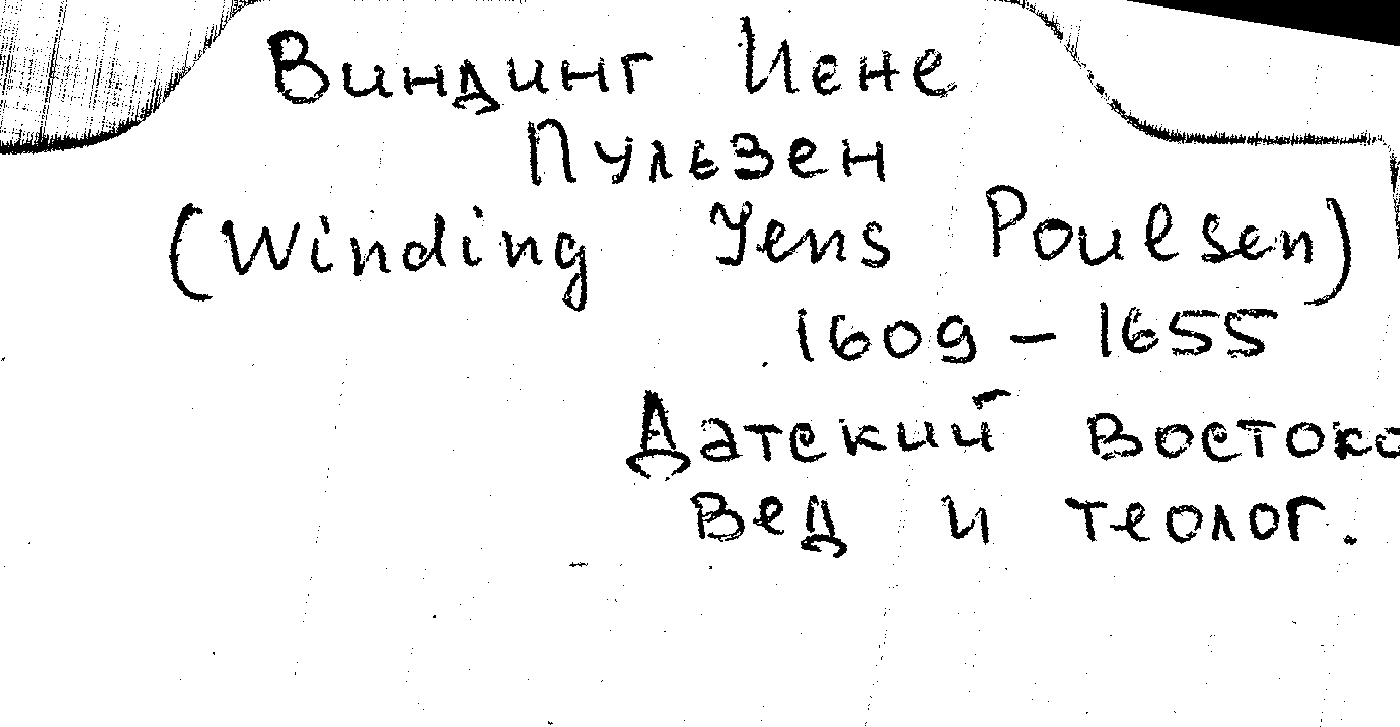 Виндинг Иене
Пульзен
(Winding Yens Poulsen)
1609 – 1655
Датский востоко
вед и теолог.